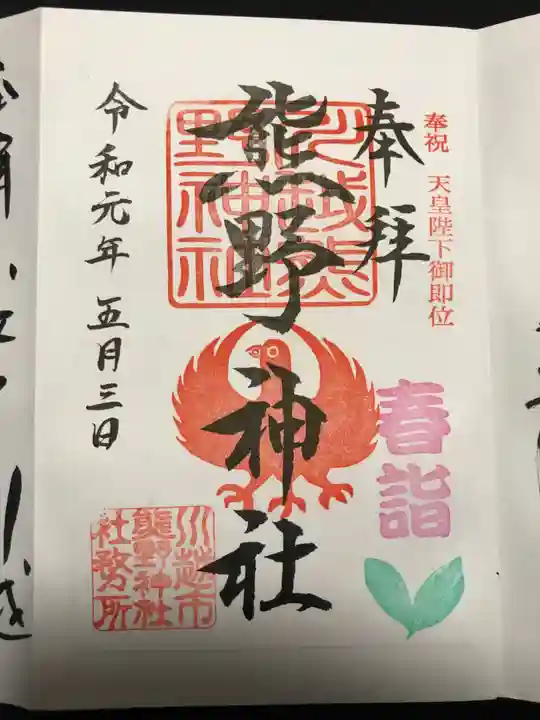 奉祝 天皇陛下御即位
奉拝
春詣
川越熊
野神社
熊野神社
川越市
熊野神社
社務所
令和元年五月三日